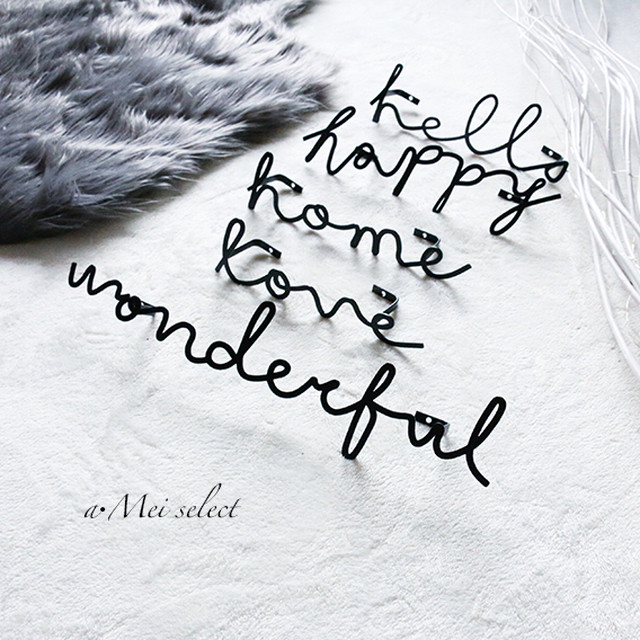 hello
happy
home
love
wonderful
a•Mei select